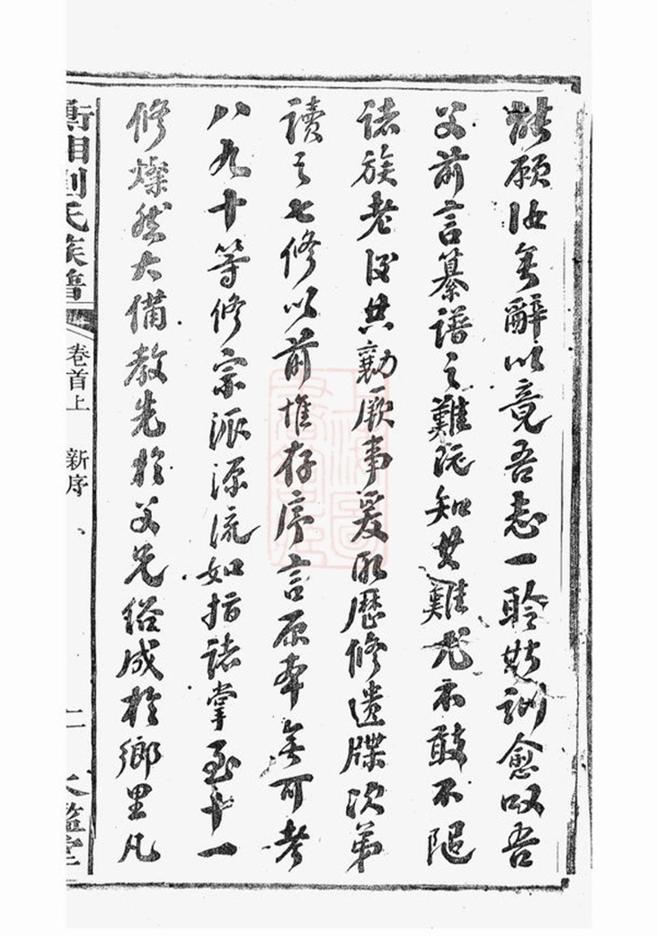 願汝無辭以竟吾志一聆斯訓愈叹吾
父前言纂譜之難既知其難尤不敢不隨
諸族老後共勷厥事爰取歷修遺牒次第
讀之七修以前惟存序言原本無可考
八九十等修宗派源流如指諸掌至十一
修燦然大備教先於父兄俗成於鄉里凡
衡湘劉氏族譜
卷首上 新序
二